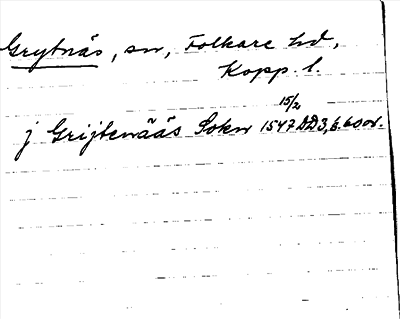 Grytnäs, sn, Folkare hd,
Kopp. l.
15/2
j Grijtenääs Sokn 1547 DD3, b. 60 v.